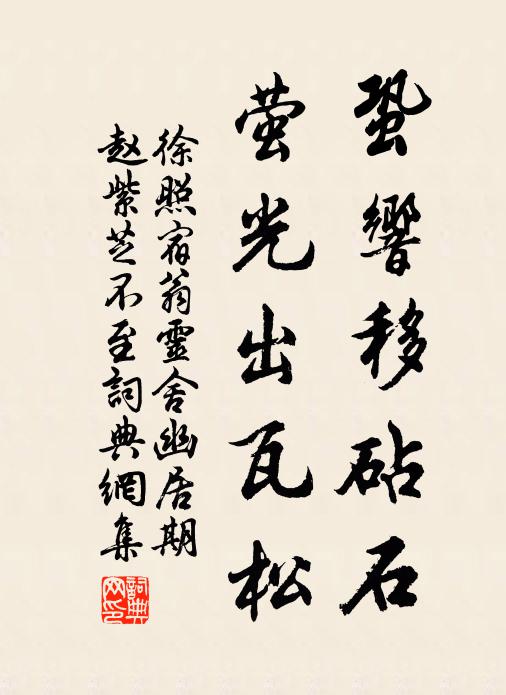 蛩響移砧石
萤光出瓦松
徐照宿翁靈舍幽居期
赵紫芝不至詞典網集
詞典网印